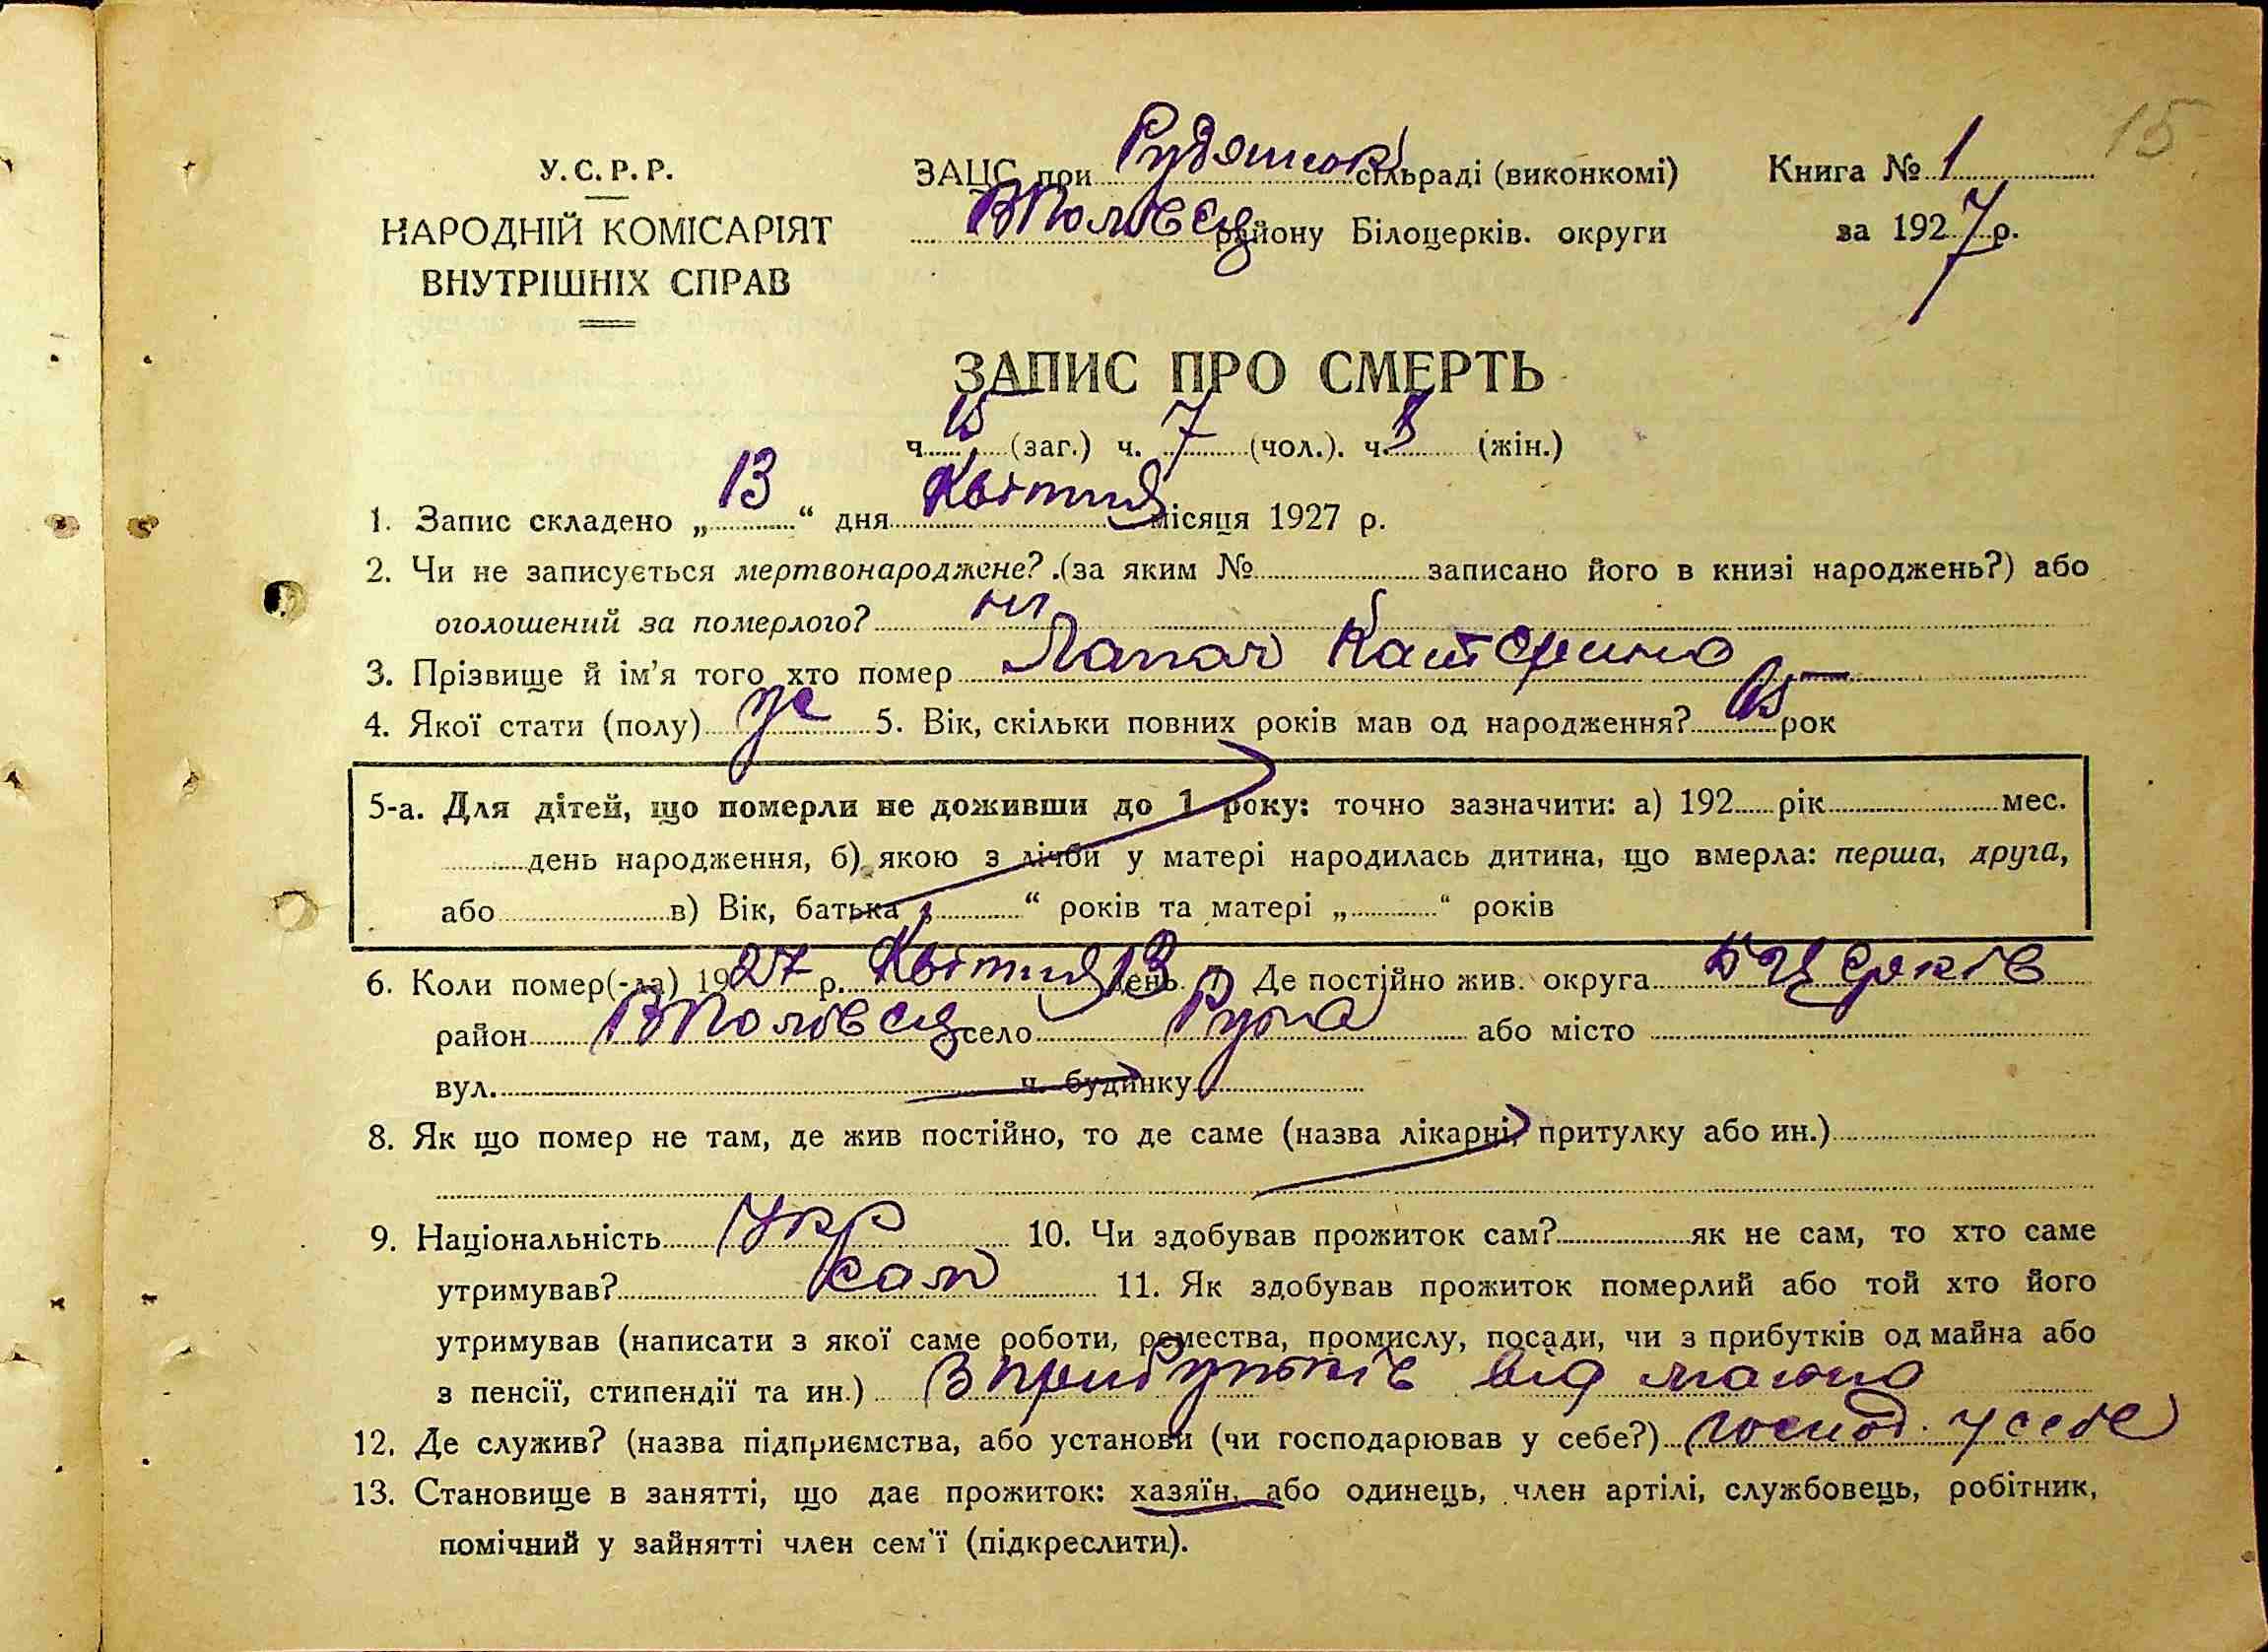 15
У.С.Р.Р.
НАРОДНІЙ КОМІСАРІЯТ
ВНУТРІШНІХ СПРАВ
ЗАЦС при Рудянській сільраді (виконкомі)
ВПоловец району Білоцерків. округи
Книга № 1
за 1927 р.
ЗАПИС ПРО СМЕРТЬ
ч. 15 (заг.) ч. 7 (чол.). ч. 8 (жін.)
1. Запис складено „13“ дня Квітня місяця 1927 р.
2. Чи не записується мертвонароджене? (за яким № записано його в книзі народжень?) або
оголошений за померлого? ні
3. Прізвище й ім'я того хто помер Лапач Катерина
4. Якої стати (полу) ж 5. Вік, скільки повних років мав од народження? рок
5-а. Для дітей, що померли не доживши до 1 року: точно зазначити: а) 192 рік мес.
день народження, б) якою з лічби у матері народилась дитина, що вмерла: перша, друга,
або в) Вік, батька „ “ років та матері „ “ років
6. Коли помер(-ла) 1927 р. Квітня 13 день 7. Де постійно жив. округа БЦерків
район ВПоловец село Руда або місто
вул. ч. будинку
8. Як що помер не там, де жив постійно, то де саме (назва лікарні, притулку або ин.)
9. Національність Укр 10. Чи здобував прожиток сам? як не сам, то хто саме
утримував? сам 11. Як здобував прожиток померлий або той хто його
утримував (написати з якої саме роботи, ремества, промислу, посади, чи з прибутків од майна або
з пенсії, стипендії та ин.) З прибутків від майна
12. Де служив? (назва підприємства, або установи (чи господарював у себе?) господ. у себе
13. Становище в занятті, що дає прожиток: хазяїн, або одинець, член артілі, службовець, робітник,
помічний у зайнятті член сем'ї (підкреслити).